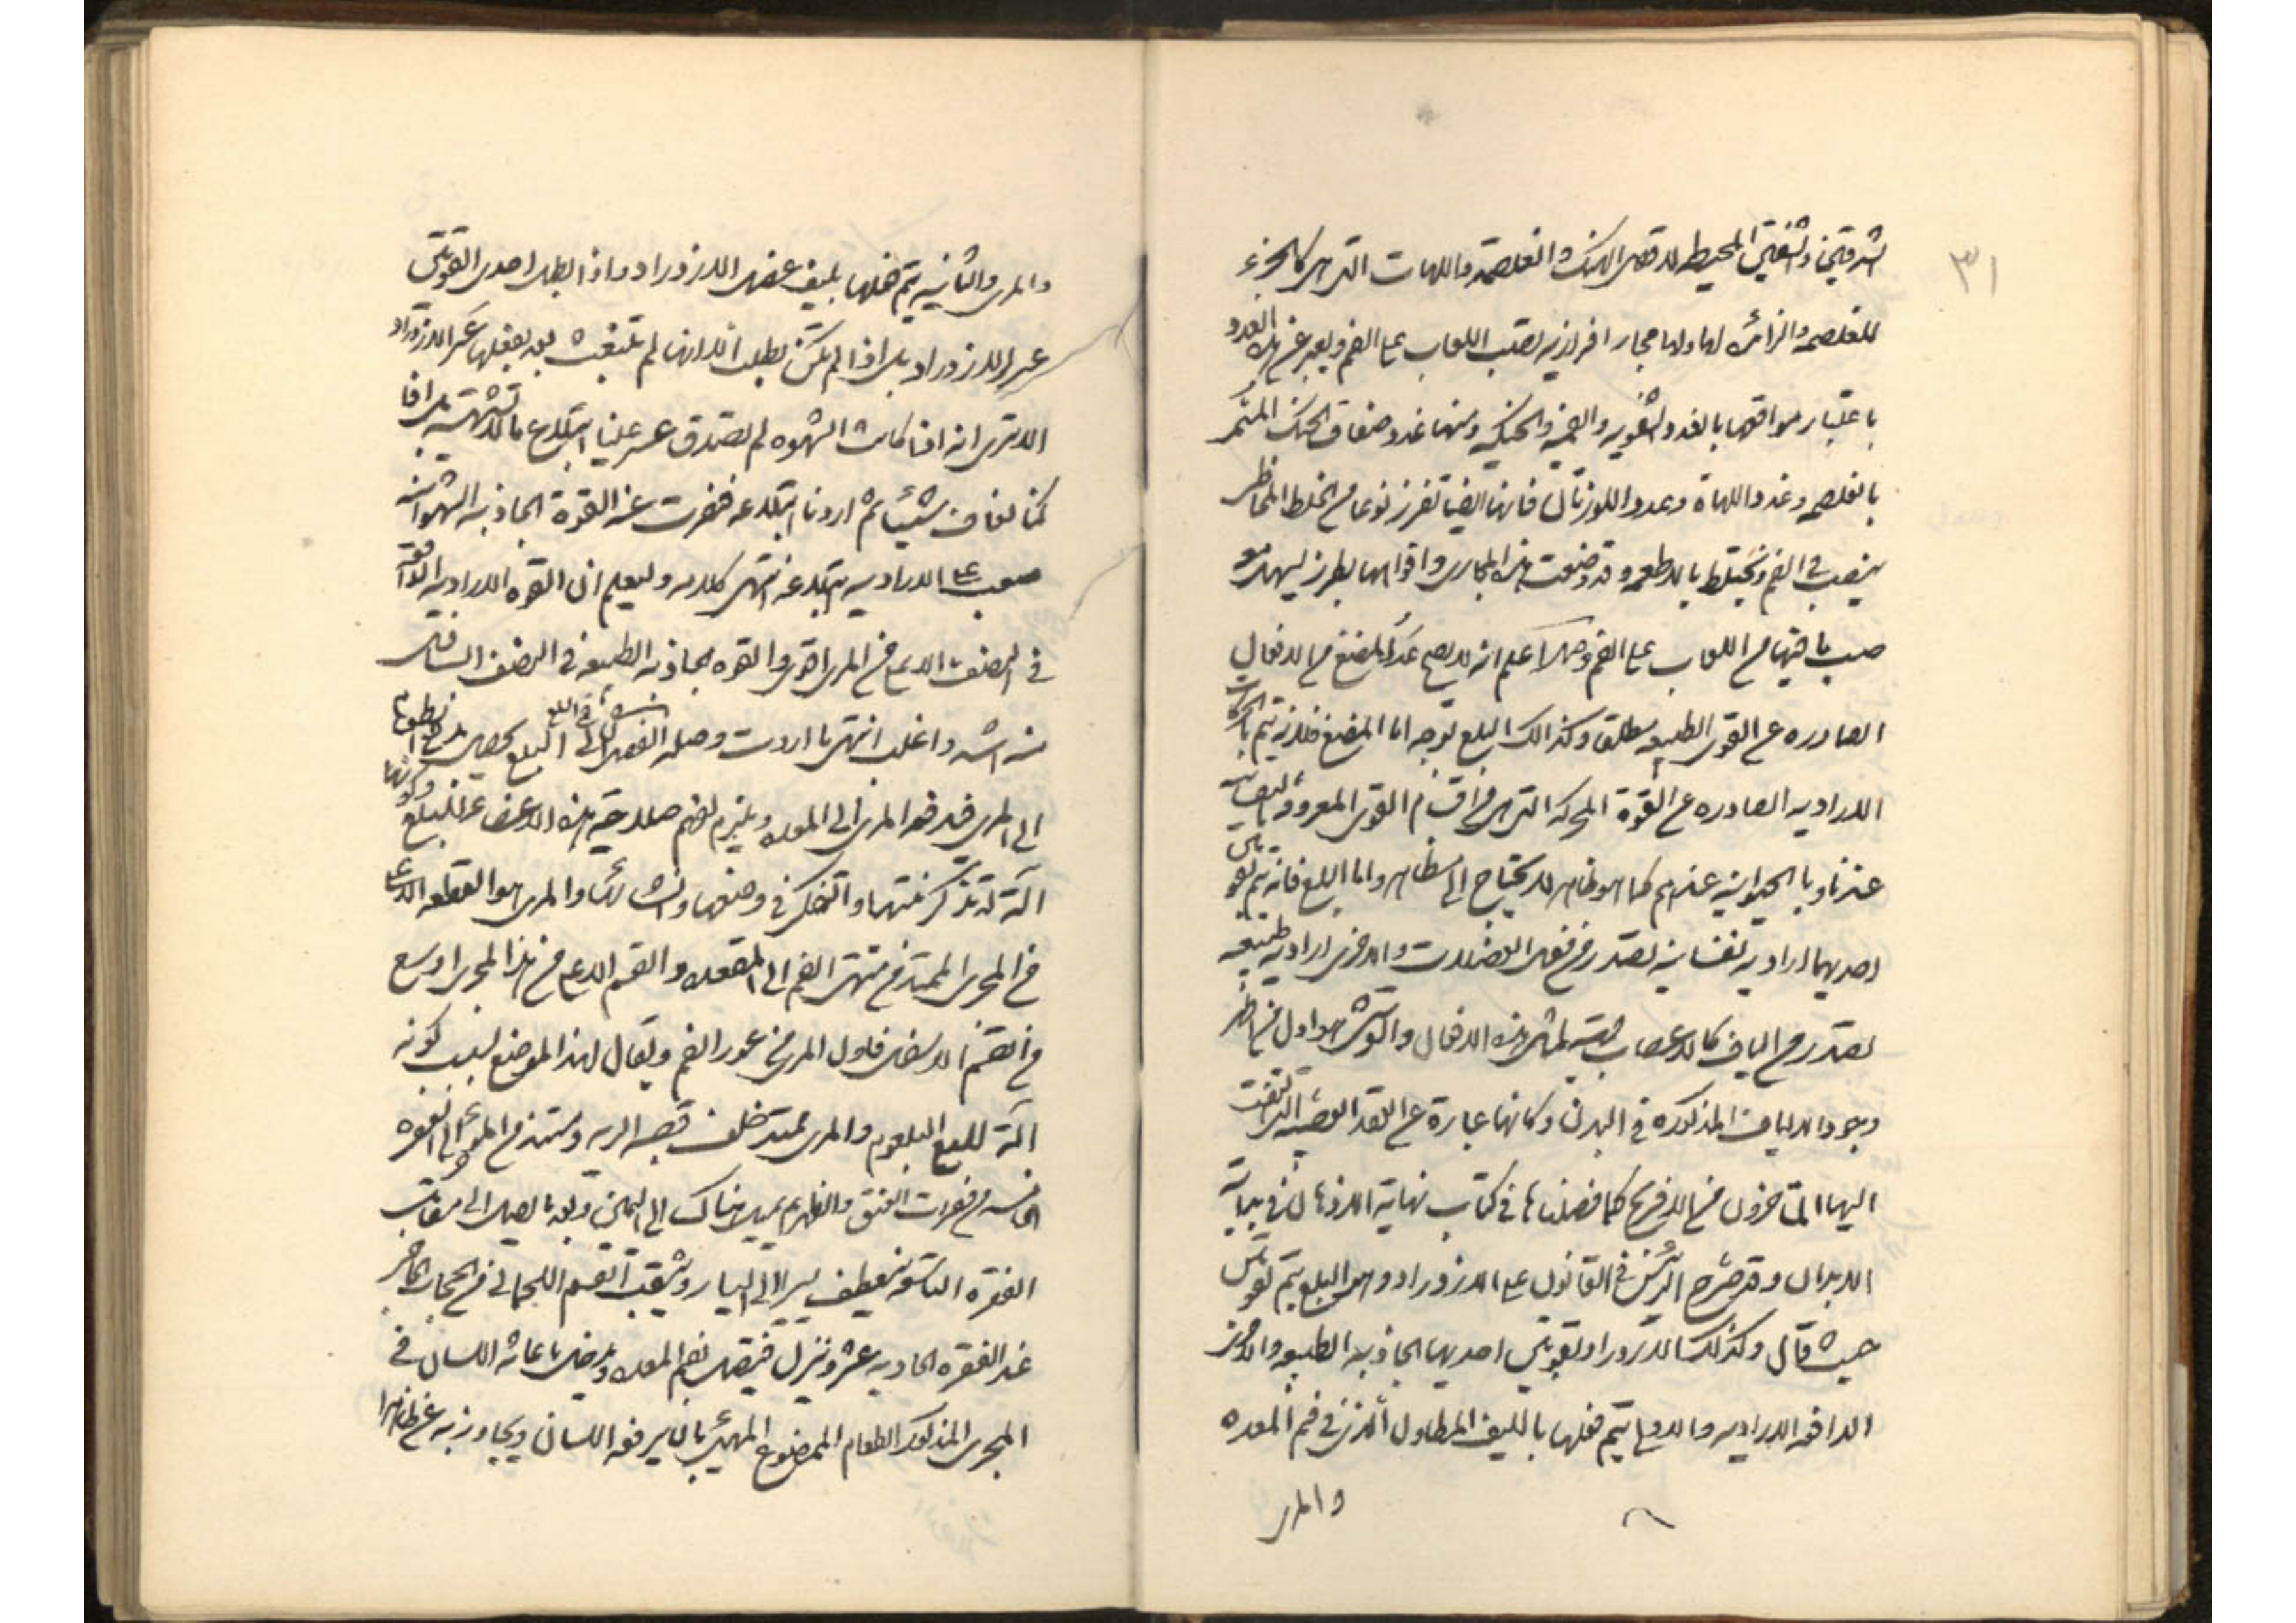 ٣١
الشدقتين والشفتين المحيط لاقصى الحنك والغلصمة واللهات التي هي كالجزء
للغلصمه والزائده لها ولها مجار افرازيه تصب اللعاب على الفم ويعبر عن هذه الغدد
باعتبار مواقعها بالغدد الشفويه والفميه والحنكيه ومنها غدد صفاق الحنك
بالغلصمه وغدد اللهاة وغدد اللوزتان فانها ايضا تفرز نوعا من الخلط المخاطى
ينصب فى الفم ويختلط بالاطعمه وقد وضعت هذه المجارى وافواهها بطرز ليسهل
صب ما فيها من اللعاب على الفم وهكذا اعلم انه لا يصح عد المضغ من الافعال
الصادره عن القوى الطبيعيه مطلقا وكذالك البلع لوجه اما المضغ فلانه يتم بالحركات
الاراديه الصادره عن القوة المحركه التى هى من اقسام القوى المعروفه بالنفسانيه
عندنا وبالحيوانيه عندهم كما هو ظاهر لا يحتاج الى مظاهر واما البلع فانه يتم بقوتين
احديهما اراديه نفسانيه تصدر من فعل العضلات والاخرى اراديه طبيعيه
تصدر من الياف كالاعصاب لمثل هذه الافعال والشيخ هو اول من اظهر
وجود الالياف المذكوره فى البدن وكانها عبارة عن العقد العصبيه التى التفت
اليها المتاخرون من الافرنج كما فصلناها فى كتاب نهاية الاذهان فى بيان
الابدان وقد صرح الرئيس فى القانون على الازدراد وهو البلع يتم بقوتين
حيث قال وكذلك الازدراد بقوتين احديها الجاذبه الطبيعيه والاخرى
الدافعه الاراديه والاولى يتم فعلها بالليف المطاول الذى فى فم المعده
والمرى
والمرى والثانيه يتم فعلها بليف عضل الازدراد واذا بطل احدى القوتين
عسر الازدراد بل اذا لم تكن بطلت الا انها لم تنبعث بعد لفعلها عسر الازدراد
الا ترى انه اذا كانت الشهوه لم تصدق عسر علينا ابتلاع ما لا نشتهيه بل اذا
كنا نعاف شيئا ثم اردنا ابتلاعه فنفرت عنه القوة الجاذبه الشهوانيه
صعب على الاراديه ابتلاعه انتهى كلامه وليعلم ان القوه الاراديه الواقعه
فى النصف الاعلى من المرى اقوى والقوه الجاذبه الطبيعيه فى النصف السافل
منه اشد واغلب انتهى ما اردت وصلة الفصل فى البلع
الى المرى فيدفعه المرى الى المعده ويلزم لفهم صلاحية هذه الاعضاء على البلع وكونها
آلة له تذكر منبتها والتفكر فى وضعها وانشائها والمرى هو القطعه الاعلى
من المجرى الممتد من منتهى الفم الى المقعده والقسم الاعلى من هذا المجرى اوسع
من القسم الاسفل فاول المرى من غور الفم ويقال لهذا الموضع لسبب كونه
آلة للبلع البلعوم والمرى يمتد خلف قصبه الريه ويستمد من العنق الى الفقره
الخامسه من فقرات العنق والظهر ثم يميل هناك الى اليمين وبعد ما يصل الى مقابل
الفقره التاسعه ينعطف يسرا الى اليسار ويثقب القسم اللحمانى من الحجاب الحاجز
عند الفقره الحاديه عشر وينزل فيتصل بفم المعده ويدخل باعانة اللسان فى
المجرى المذكور الطعام الممضوغ المهيئ بان يرفعه اللسان ويجاوز به عن ظاهر